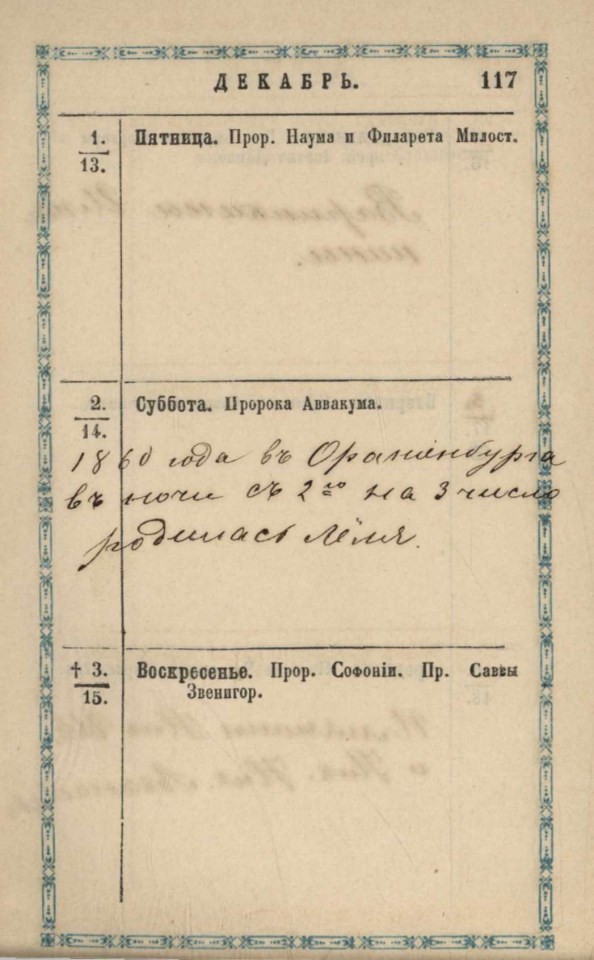 ДЕКАБРЬ. 117
1. Пятница. Прор. Наума и Филарета Милост.
13.
2. Суббота. Пророка Аввакума.
14.
1860 года въ Ораніенбурга
въ ночи съ 2го на 3 число
родилась Лёля.
† 3. Воскресенье. Прор. Софоніи. Пр. Саввы
15. Звенигор.